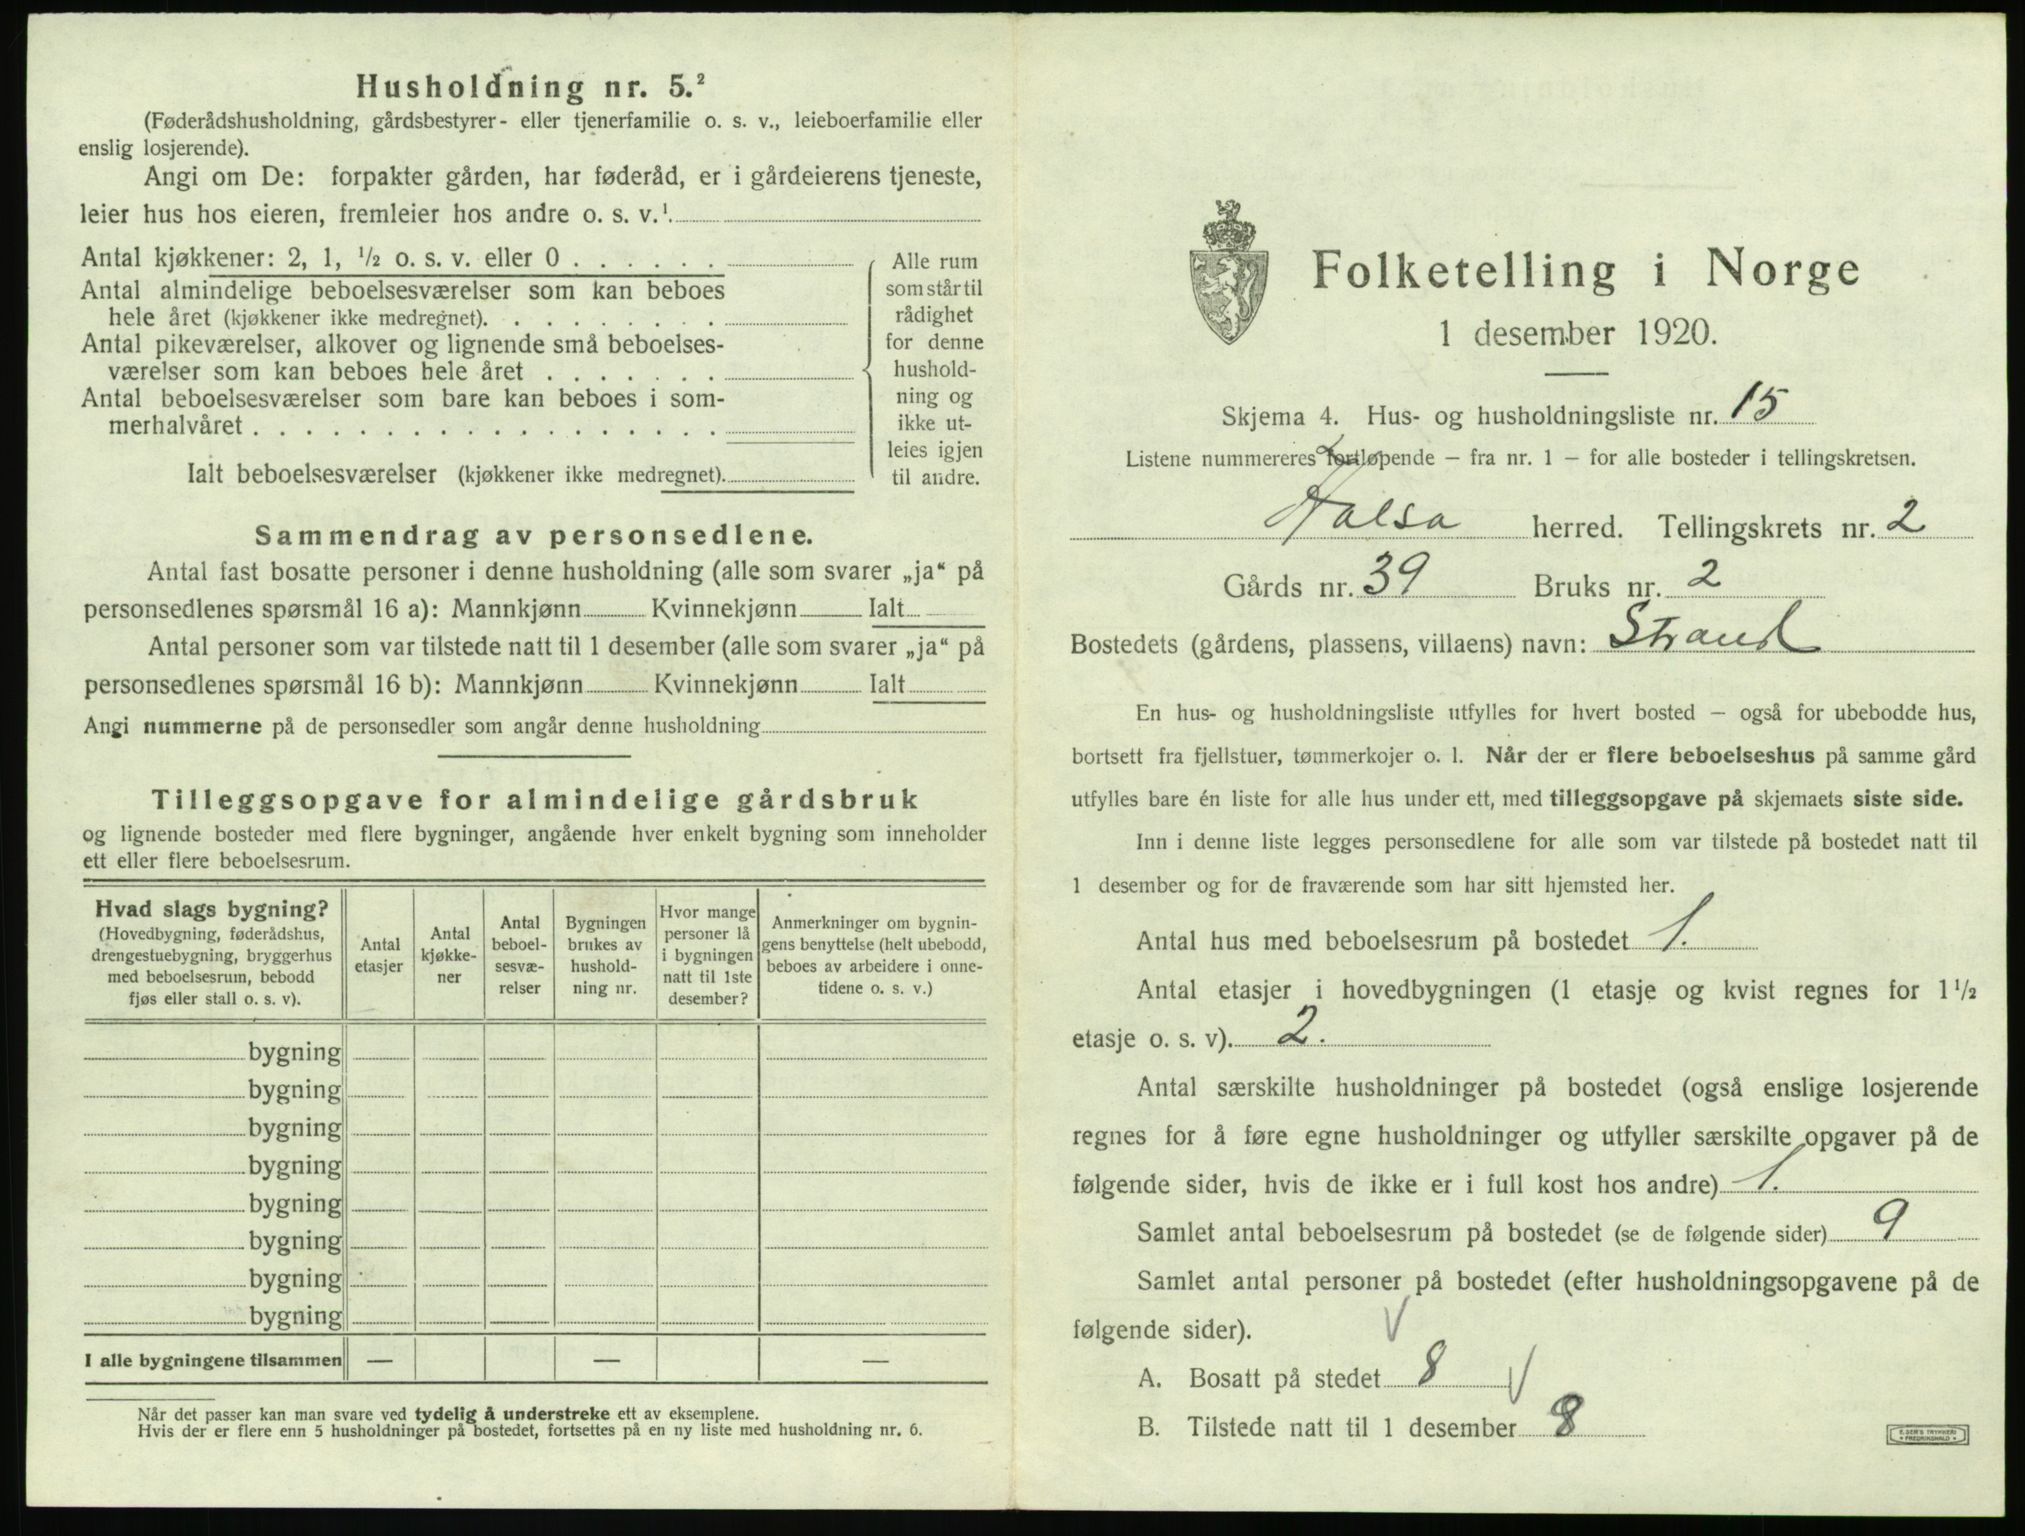 Husholdning nr. 5.²
(Føderådshusholdning, gårdsbestyrer- eller tjenerfamilie o. s. v., leieboerfamilie eller
enslig losjerende).
Angi om De: forpakter gården, har føderåd, er i gårdeierens tjeneste,
leier hus hos eieren, fremleier hos andre o. s. v.¹.
Antal kjøkkener: 2, 1, ½ o. s. v. eller 0 . . . . . .
Antal almindelige beboelsesværelser som kan beboes
hele året (kjøkkener ikke medregnet). . . . . . . . .
Antal pikeværelser, alkover og lignende små beboelses-
værelser som kan beboes hele året . . . . . . .
Antal beboelsesværelser som bare kan beboes i som-
merhalvåret . . . . . . . . . . . . . . . . . .
Ialt beboelsesværelser (kjøkkener ikke medregnet).
Alle rum
som står til
rådighet
for denne
hushold-
ning og
ikke ut-
leies igjen
til andre.
Sammendrag av personsedlene.
Antal fast bosatte personer i denne husholdning (alle som svarer „ja“ på
personsedlenes spørsmål 16 a): Mannkjønn Kvinnekjønn Ialt
Antal personer som var tilstede natt til 1 desember (alle som svarer „ja“ på
personsedlenes spørsmål 16 b): Mannkjønn Kvinnekjønn Ialt
Angi nummerne på de personsedler som angår denne husholdning
Tilleggsopgave for almindelige gårdsbruk
og lignende bosteder med flere bygninger, angående hver enkelt bygning som inneholder
ett eller flere beboelsesrum.
Hvad slags bygning?
(Hovedbygning, føderådshus,
drengestuebygning, bryggerhus
med beboelsesrum, bebodd
fjøs eller stall o. s. v).
Antal
etasjer
Antal
kjøkke-
ner
Antal
beboel-
sesvæ-
relser
Bygningen
brukes av
hushold-
ning nr.
Hvor mange
personer lå
i bygningen
natt til 1ste
desember?
Anmerkninger om bygnin-
gens benyttelse (helt ubebodd,
beboes av arbeidere i onne-
tidene o. s. v.)
bygning
bygning
bygning
bygning
bygning
bygning
bygning
bygning
I alle bygningene tilsammen — — —
Når det passer kan man svare ved tydelig å understreke ett av eksemplene.
Hvis der er flere enn 5 husholdninger på bostedet, fortsettes på en ny liste med husholdning nr. 6.
Folketelling i Norge
1 desember 1920.
Skjema 4. Hus- og husholdningsliste nr. 15
Listene nummereres fortløpende – fra nr. 1 – for alle bosteder i tellingskretsen.
Halsa herred. Tellingskrets nr. 2
Gårds nr. 39 Bruks nr. 2
Bostedets (gårdens, plassens, villaens) navn: Strand
En hus- og husholdningsliste utfylles for hvert bosted – også for ubebodde hus,
bortsett fra fjellstuer, tømmerkojer o. l. Når der er flere beboelseshus på samme gård
utfylles bare én liste for alle hus under ett, med tilleggsopgave på skjemaets siste side.
Inn i denne liste legges personsedlene for alle som var tilstede på bostedet natt til
1 desember og for de fraværende som har sitt hjemsted her.
Antal hus med beboelsesrum på bostedet 1.
Antal etasjer i hovedbygningen (1 etasje og kvist regnes for 1½
etasje o. s. v). 2.
Antal særskilte husholdninger på bostedet (også enslige losjerende
regnes for å føre egne husholdninger og utfyller særskilte opgaver på de
følgende sider, hvis de ikke er i full kost hos andre) 1.
Samlet antal beboelsesrum på bostedet (se de følgende sider) 9
Samlet antal personer på bostedet (efter husholdningsopgavene på de
følgende sider).
A. Bosatt på stedet 8
B. Tilstede natt til 1 desember 8